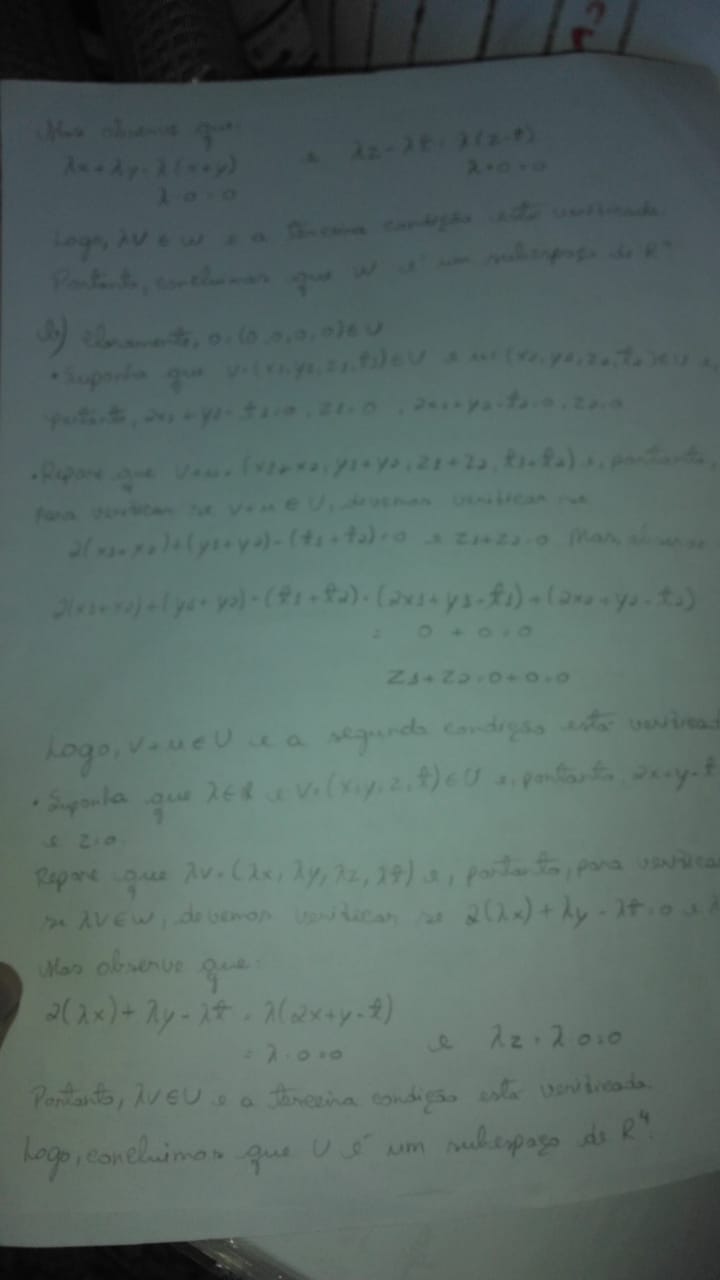 Mas observe que:
λx+λy=λ(x+y) e λz-λt=λ(z-t)
λ·0=0 λ·0=0
Logo, λv∈W e a terceira condição está verificada
Portanto, concluimos que W é um subespaço de R⁴
b) Claramente, 0=(0,0,0,0)∈U
• Suponha que v=(x1,y1,z1,t1)∈U e u=(x2,y2,z2,t2)∈U e,
portanto, 2x1+y1-t1=0, z1=0, 2x2+y2-t2=0, z2=0
• Repare que v+u=(x1+x2, y1+y2, z1+z2, t1+t2) e, portanto,
para verificar se v+u∈U, devemos verificar se
2(x1+x2)+(y1+y2)-(t1+t2)=0 e z1+z2=0 Mas, observe
2(x1+x2)+(y1+y2)-(t1+t2)=(2x1+y1-t1)+(2x2+y2-t2)
= 0+0=0
z1+z2=0+0=0
Logo, v+u∈U e a segunda condição está verificad
• Suponha que λ∈R e v=(x,y,z,t)∈U e, portanto, 2x+y-t
e z=0
Repare que λv=(λx, λy, λz, λt) e, portanto, para verifica
se λv∈W, devemos verificar se 2(λx)+λy-λt=0 e λ
Mas observe que:
2(λx)+λy-λt=λ(2x+y-t)
=λ·0=0 e λz=λ·0=0
Portanto, λv∈U e a terceira condição está verificada
Logo, concluimos que U é um subespaço de R⁴.